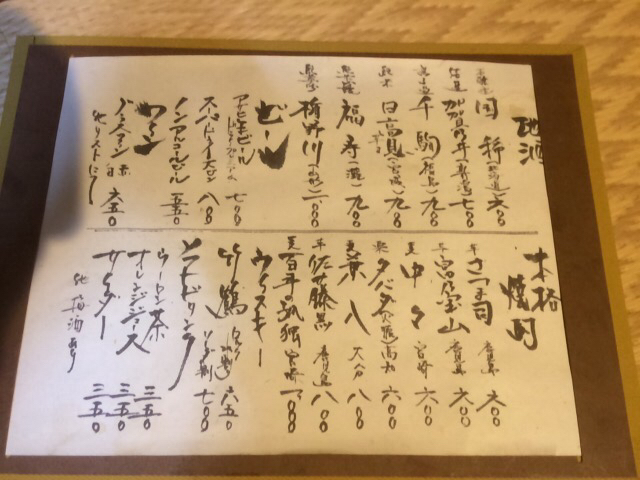 地酒
国稀(北海道) 六〇〇
加賀の井(新潟) 七〇〇
千駒(福島) 九〇〇
日高見(宮城) 九〇〇
福寿(灘) 九〇〇
(山形) 一、〇〇〇
ビール
アサヒ生ビール 七〇〇
スーパードライ 八〇〇
ノンアルコールビール 五五〇
ワイン
グラスワイン 赤 白 六五〇
他リストに
本格焼酎
芋 さつま司 鹿児島 六〇〇
芋 宮乃宝山 鹿児島 六〇〇
麦 中々 宮崎 六〇〇
タバダ 高知 六〇〇
麦 兼八 大分 八〇〇
芋 佐藤黒 鹿児島 八〇〇
麦 百年の孤独 宮崎 一、〇〇〇
ウイスキー
竹鶴 ロック 水割 六五〇
ソーダ割 七〇〇
ソフトドリンク
ウーロン茶 三五〇
オレンジジュース 三五〇
サイダー 三五〇
他 梅酒あり